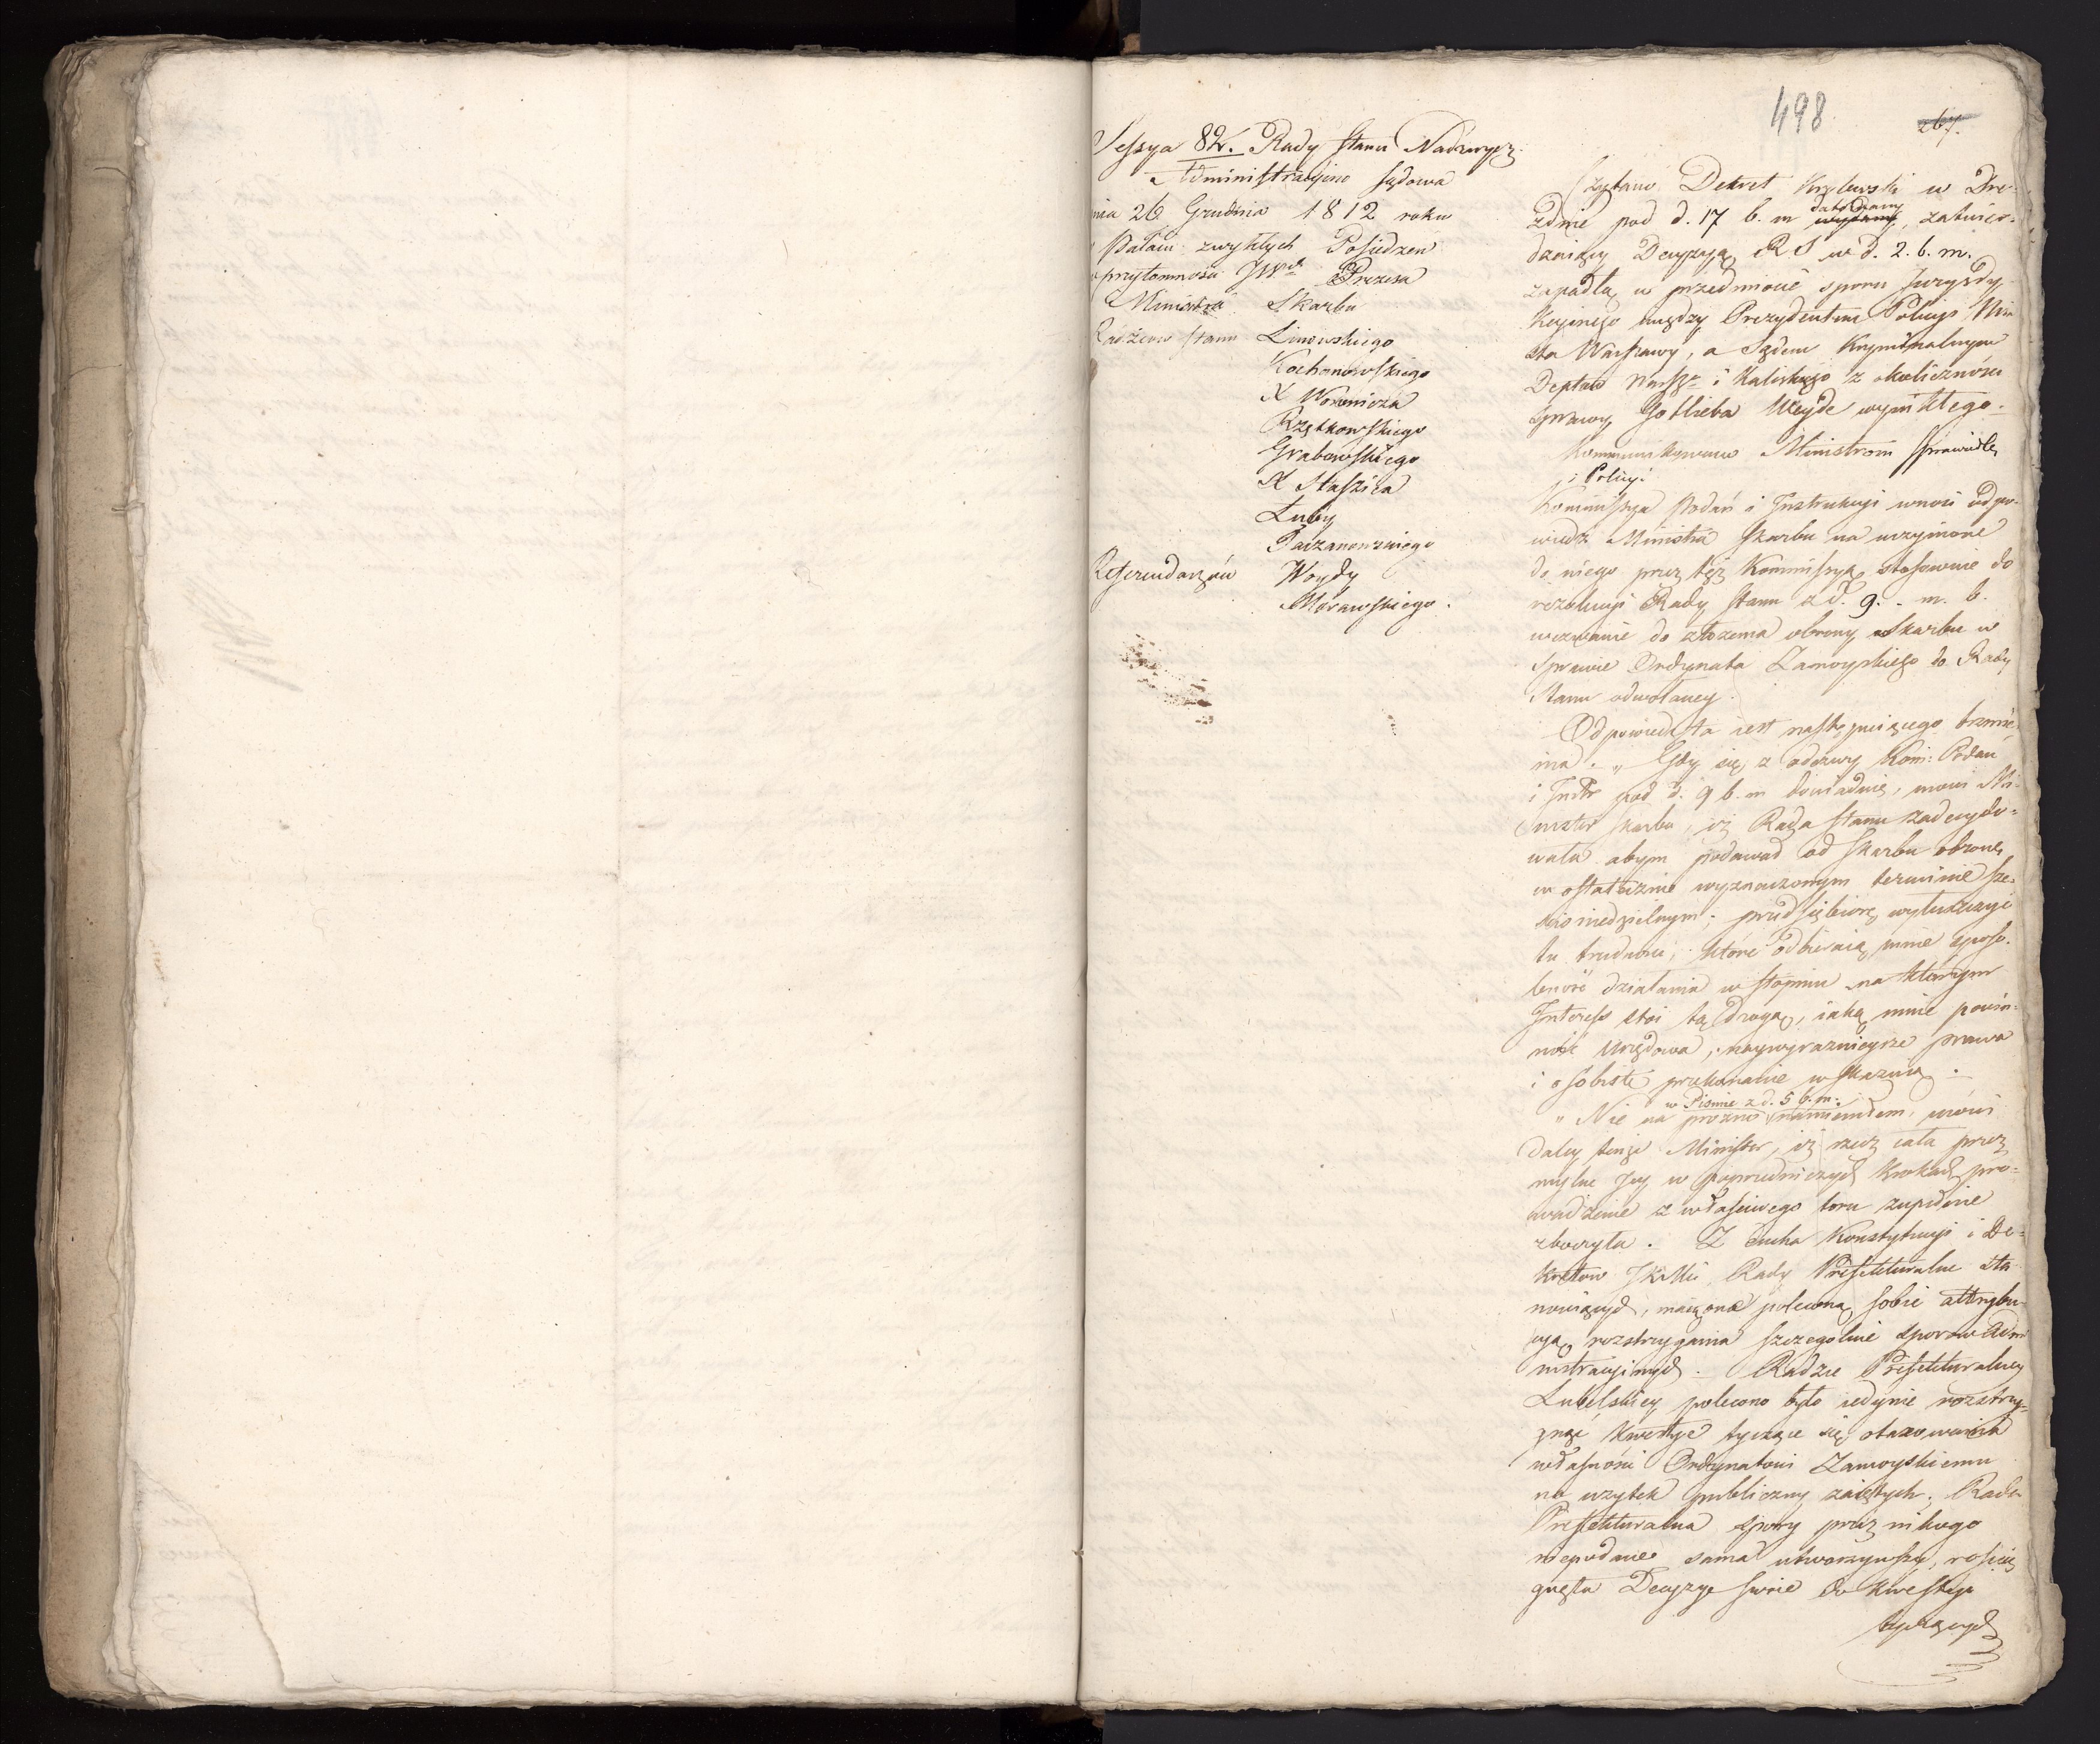 498
267.
Sessya 82. Rady Stanu Nadzwycz.
Administracyino Sądowa
nia 26 Grudnia 1812 roku
Pałacu zwykłych Posiedzeń
przytomności JWgo Prezesa
Ministra Skarbu
Radźców Stanu Linowskiego
Kochanowskiego
X Woronicza
Rzętkowskiego
Grabowskiego
X Staszica
Luby
Paczanowskiego
Referendarzów Woydy
Morawskiego.
Czytano Dekret Królewski w Dre-
datowany
znie pod d. 17 b. m wydany, zatwier-
dzaiący Decyzyą RS w d. 2. b. m.
zapadłą w przedmiocie sporu Juryzdy-
kcyinego między Prezydentem Policyi Mia
sta Warszawy, a Sądem Kryminalnym
Deptów Warszo i Kaliskiego z okoliczności
sprawy Gotlieba Weyde wynikłego.
Kommunikowano Ministrom Sprawiedle
i Policyi
Kommissya Podań i Instrukcyi wnosi odpo-
wiedź Ministra Skarbu na uczynione
do niego przez tęż Kommissyą stosownie do
rezolucyi Rady Stanu z d. 9. m. b.
wezwanie do złożenia obrony Skarbu w
sprawie Ordynata Zamoyskiego do Rady
Stanu odwołaney.
Odpowiedź ta iest następuiącego brzmie-
nia. „Gdy się z odezwy Kom: Podań
i Instr pod d. 9 b. m dowiaduię, mówi Mi-
nister Skarbu, iż Rada Stanu zadecydo-
wała abym podawał od Skarbu obronę
w ostatecznie wyznaczonym terminie sze-
ścio niedzielnym; przedsiębiorę wytłuszczyć
tu trudności, które odbieraią mnie sposo-
bność działania w stopniu na którym
Interess stoi tą drogą, iaką mnie powin-
ność Urzędowa, naywyraznieysze prawa
i osobiste przekonanie wskazuią.
w Pismie z d. 5 b. m.
„Nie na prózno namieniłem, mówi
daley tenże Minister, iż rzecz cała przez
mylne Jey w poprzedniczych krokach pro-
wadzenie z właściwego toru zupełnie
zboczyła. Z ducha Konstytucyi i De-
kretów JKMci, Rady Prefekturalne sta-
nowiących, maią one poleconą sobie attrybu-
cyą rozstrzygania szczególnie sporów Admi
nistracyinych. Radzie Prefekturalney
Lubelskiey polecono było iedynie rozstrzy-
gnąć kwestye tyczące się otaxowania
własności Ordynatowi Zamoyskiemu
na użytek publiczny zaiętych; Rada
Prefekturalna spory przez nikogo
niepodane sama utworzywszy, rością
gnęła Decyzye swoie do kwestyi
tyczących